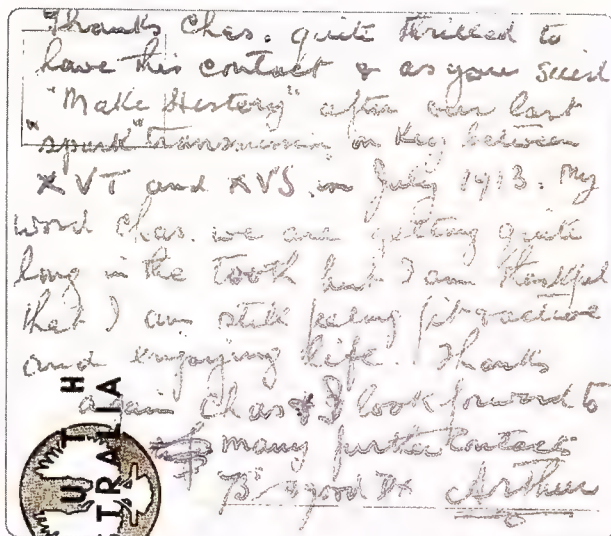 Thanks Chas. quite thrilled to
have this contact & as you said
"Make History" after our last
"spark" transmission on Key between
XVT and XVS in July 1913. My
word Chas. we are getting quite
long in the tooth but I am thankful
that I am still feeling fit & active
and enjoying life. Thanks
again Chas & I look forward to
many further contacts
73's & good DX Arthur
UTH
STRALIA